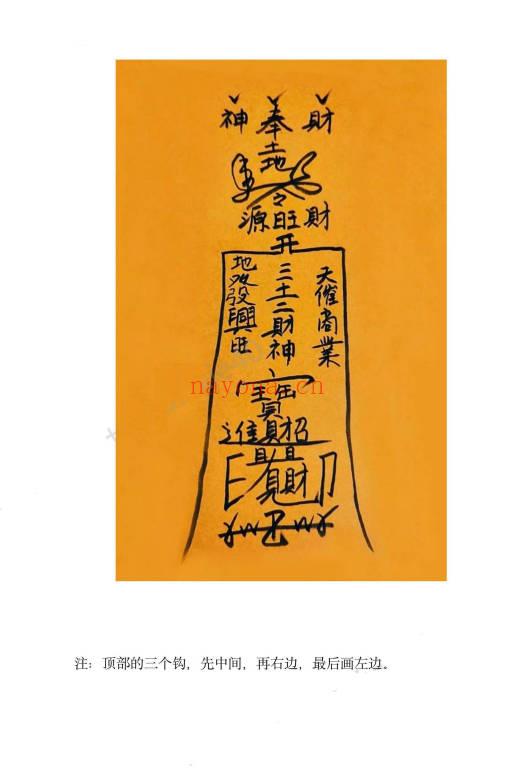 神奉財
土地
令
源旺財
开
天催商業
三十二財神
地收發興旺
進財招
財
nayona.cn
注：顶部的三个钩，先中间，再右边，最后画左边。